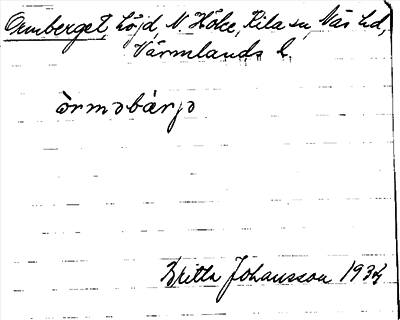 Ormberget, höjd, N. Höke, Kila sn, Näs hd,
Värmlands l.
òrməbàrjə
Britta Johansson 1935